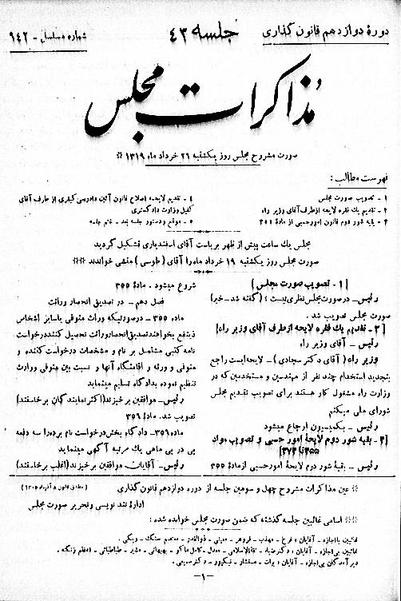 دورهٔ دوازدهم قانون گذاری
جلسه ۴۳
شماره مسلسل - ۹۴۲
مذاکرات مجلس
صورت مشروح مجلس روز یکشنبه ۲۶ خرداد ماه ۱۳۱۹
فهرست مطالب:
۱ - تصویب صورت مجلس
۲ - تقدیم یک فقره لایحه ازطرف آقای وزیر راه
۳ - بقیه شور دوم قانون امورحسبی از مادهٔ ۳۵۵
۴ - تقدیم لایحه اصلاح قانون آئین دادرسی کیفری از طرف آقای
کفیل وزارت دادگستری
۵ - موقع و دستور جلسه بعد - ختم جلسه
مجلس یک ساعت پیش از ظهر بریاست آقای اسفندیاری تشکیل گردید
صورت مجلس روز یکشنبه ۱۹ خرداد ماه را آقای (طوسی) منشی خواندند
[۱ - تصویب صورت مجلس]
رئیس - در صورت مجلس نظری نیست؟ (گفته شد - خیر)
صورت مجلس تصویب شد.
[۲ - تقدیم یک فقره لایحه ازطرف آقای وزیر راه]
رئیس - آقای وزیر راه
وزیر راه (آقای دکتر سجادی) - لایحه ایست راجع
بتجدید استخدام چند نفر از مهندسین و مستخدمین که در
وزارت راه مشغول کار هستند برای تصویب تقدیم مجلس
شورای ملی میکنم
رئیس - بکمیسیون ارجاع میشود
[۳ - بقیه شور دوم لایحهٔ امور حسبی و تصویب مواد
۳۵۵ تا ۳۷۴]
رئیس - بقیهٔ شور دوم لایحه امورحسبی از مادهٔ ۳۵۵
شروع میشود. مادهٔ ۳۵۵
فصل دهم - در تصدیق انحصار وراثت
ماده ۳۵۵ - درصورتیکه وراث متوفی یا سایر اشخاص
ذینفع بخواهند تصدیق انحصار وراثت تحصیل کنند درخواست
نامه کتبی مشتمل بر نام و مشخصات درخواست کننده و
متوفی و ورثه و اقامتگاه آنها و نسبت بین متوفی و وراث
تنظیم نموده بدادگاه تسلیم مینماید
رئیس - موافقین برخیزند (اکثر نمایندگان برخاستند)
تصویب شد. مادهٔ ۳۵۶
ماده ۳۵۶ - دادگاه بخش درخواست نام برده را سه دفعه
پی در پی ماهی یک مرتبه آگهی مینماید
رئیس - آقایان موافقین برخیزند (اغلب برخاستند)
عین مذاکرات مشروح چهل و سومین جلسه از دوره دوازدهم قانون گذاری
اداره تند نویسی و تحریر صورت مجلس
اسامی غائبین جلسه گذشته که ضمن صورت مجلس خوانده شده:
-۱-